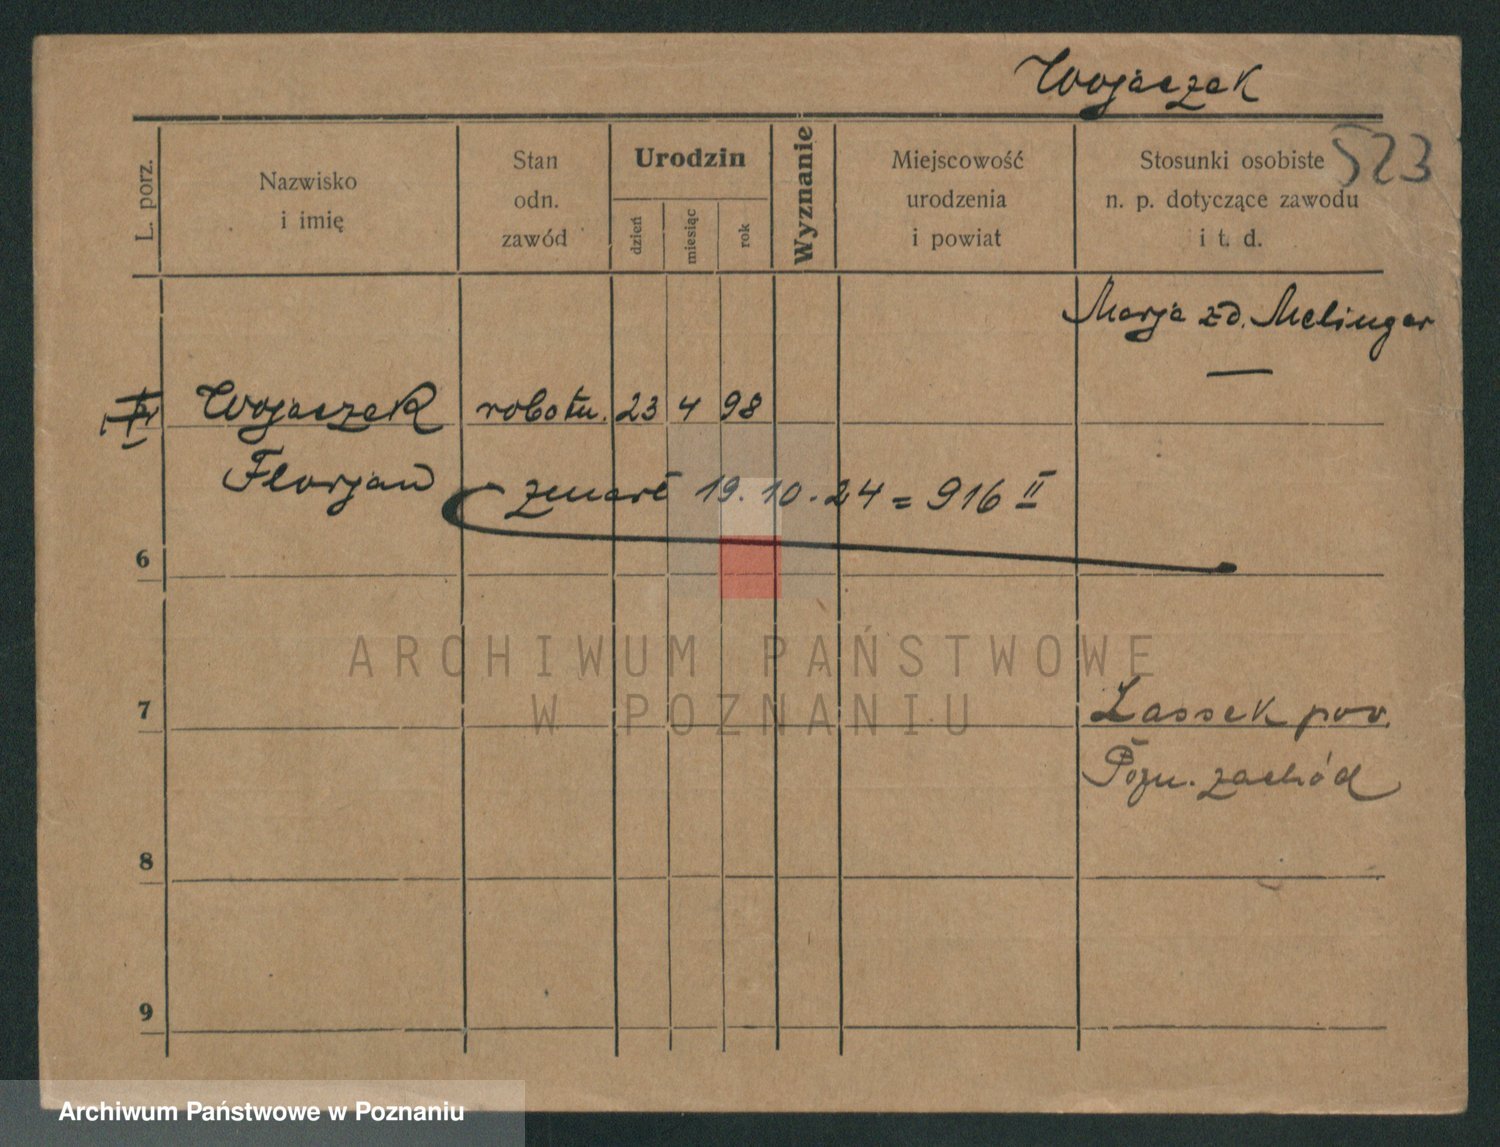 Wojaczek
523
L. porz.
Nazwisko
i imię
Stan
odn.
zawód
Urodzin
dzień
miesiąc
rok
Wyznanie
Miejscowość
urodzenia
i powiat
Stosunki osobiste
n. p. dotyczące zawodu
i t. d.
Marja zd. Melinger
Wojaczek robotn. 23 4 98
Florjan zmarł 19.10.24 = 916 II
6
7
Lassek pow.
Pozn. zachód
8
9
ARCHIWUM PAŃSTWOWE
W POZNANIU
Archiwum Państwowe w Poznaniu